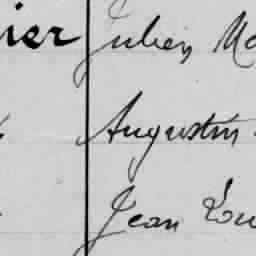 ier Julien
Augustin
Jean Lou